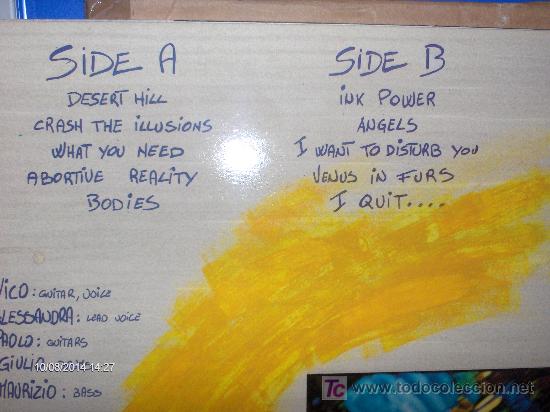 SIDE A
DESERT HILL
CRASH THE ILLUSIONS
WHAT YOU NEED
ABORTIVE REALITY
BODIES
SIDE B
INK POWER
ANGELS
I WANT TO DISTURB YOU
VENUS IN FURS
I QUIT....
VICO: GUITAR, VOICE
ALESSANDRA: LEAD VOICE
PAOLO: GUITARS
GIULIO:
MAURIZIO: BASS
10/08/2014 14:27
TC www.todocoleccion.net